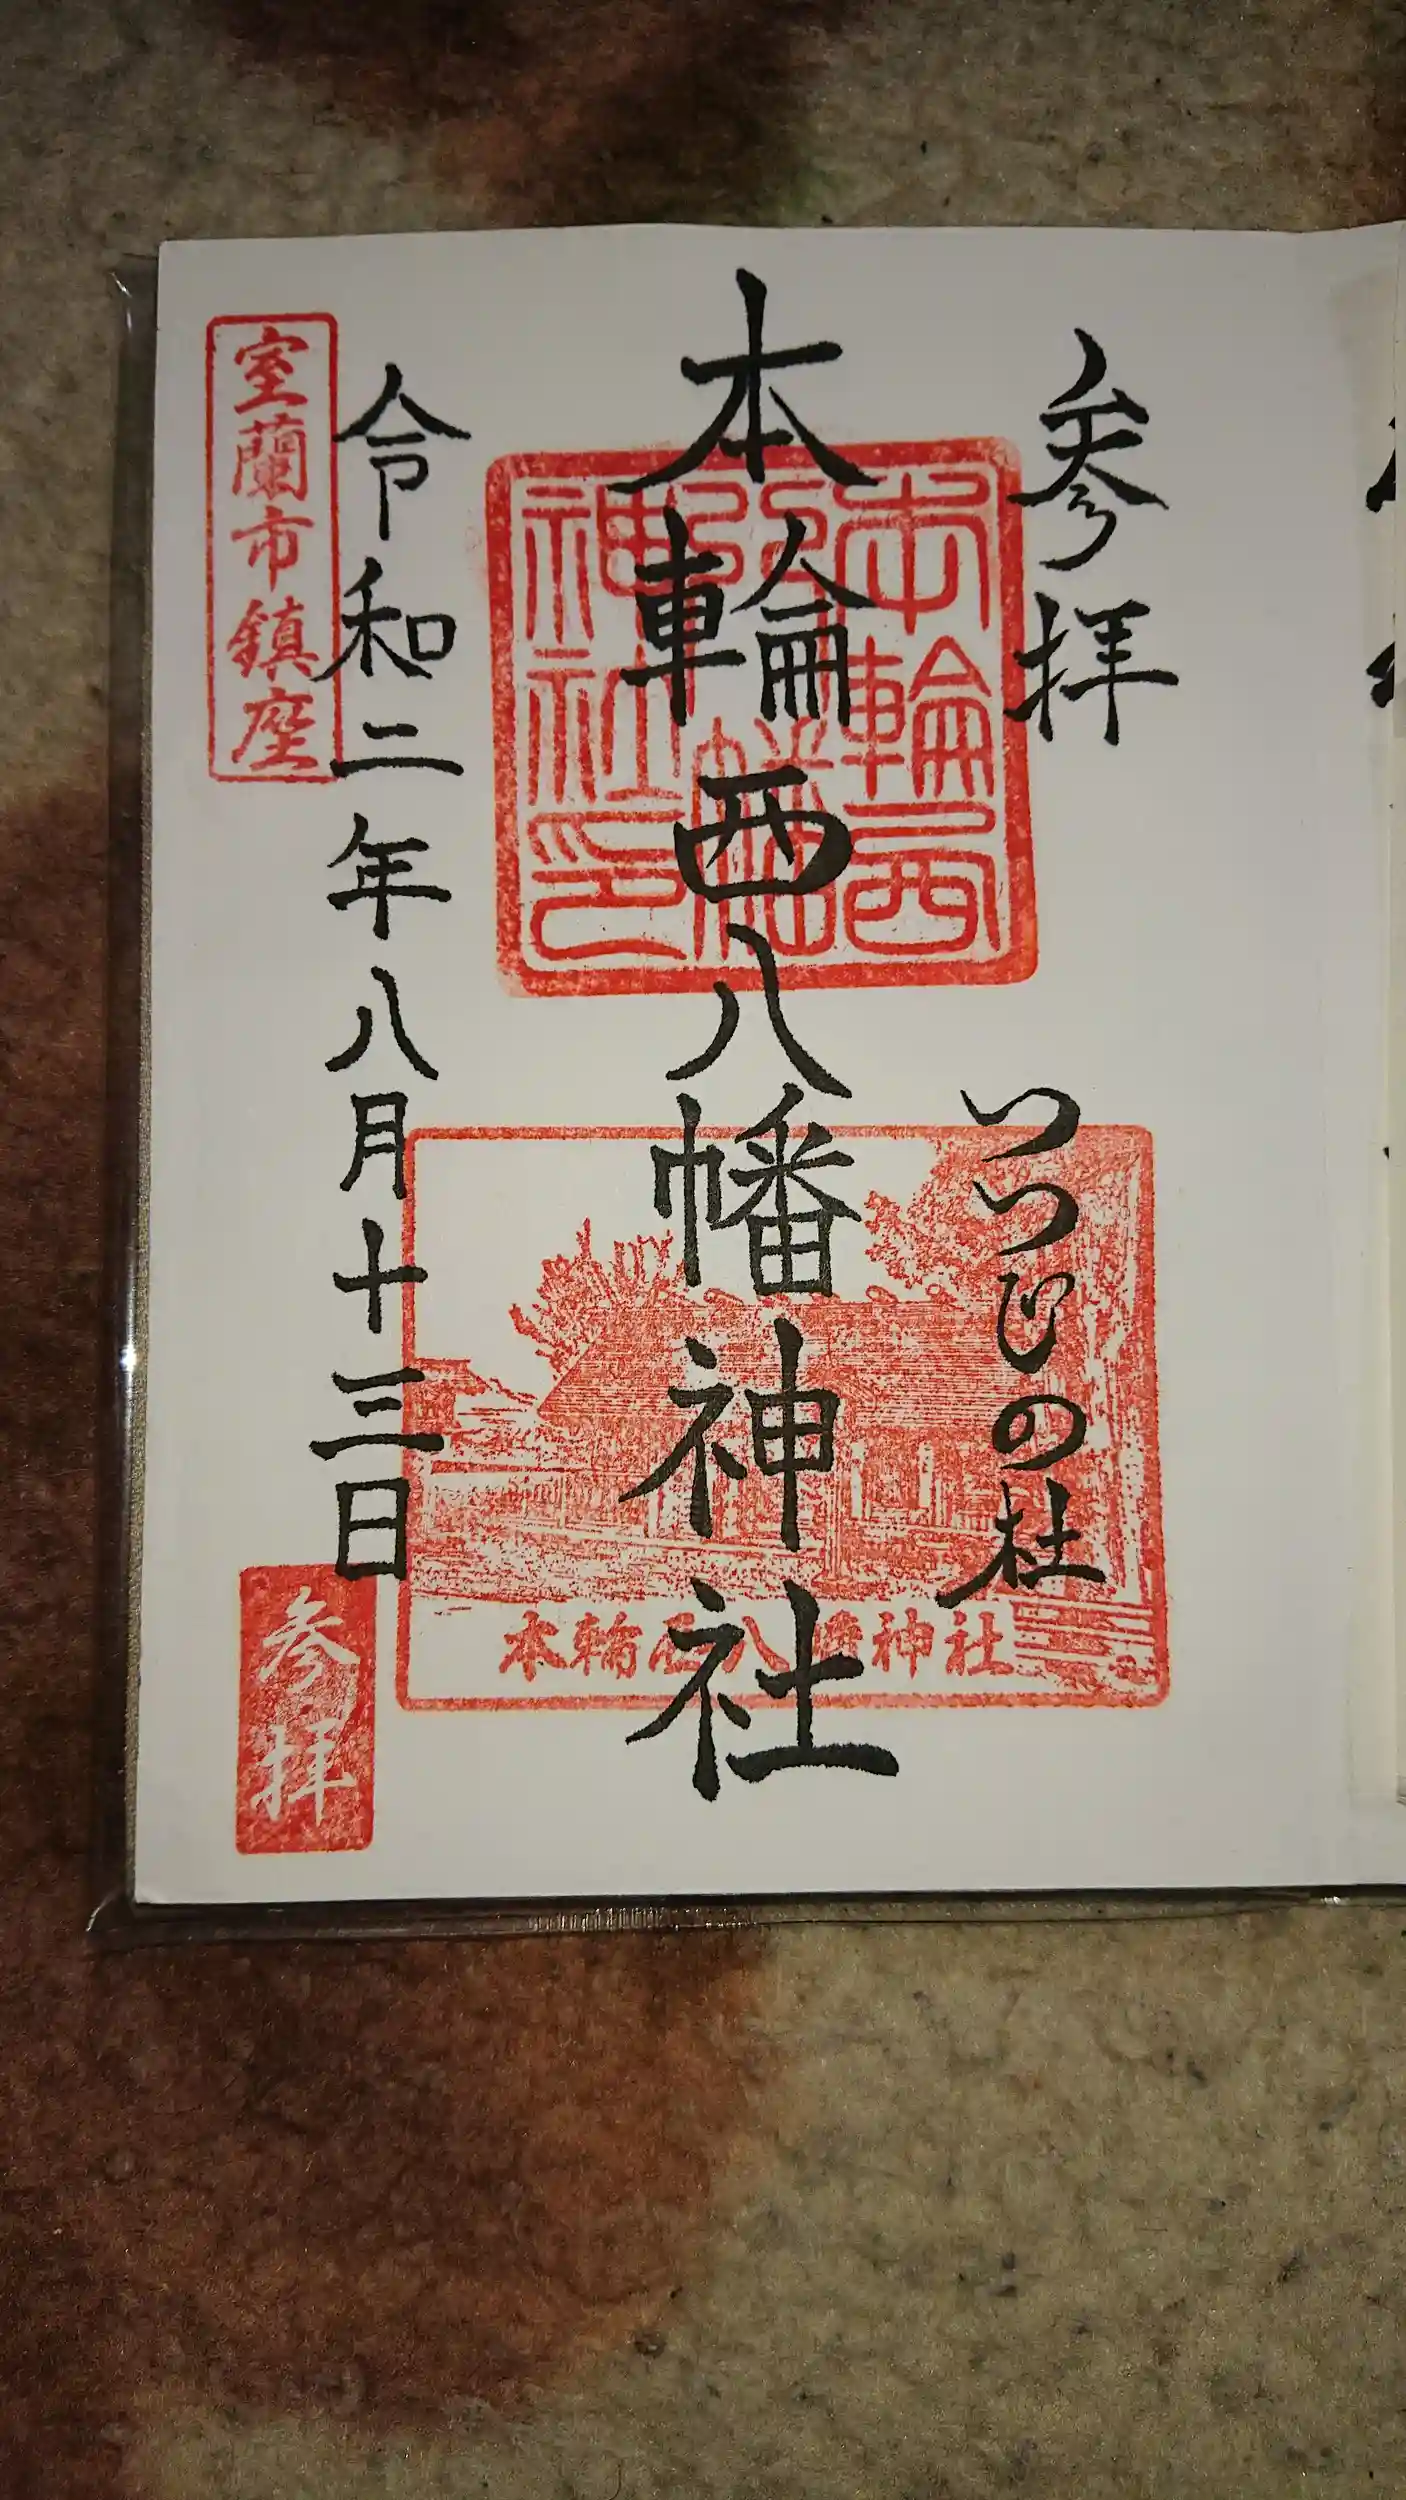 参拝
つつじの杜
本輪西八幡神社
本輪西
八幡
神社印
本輪西八幡神社
令和二年八月十三日
室蘭市鎮座
参拝